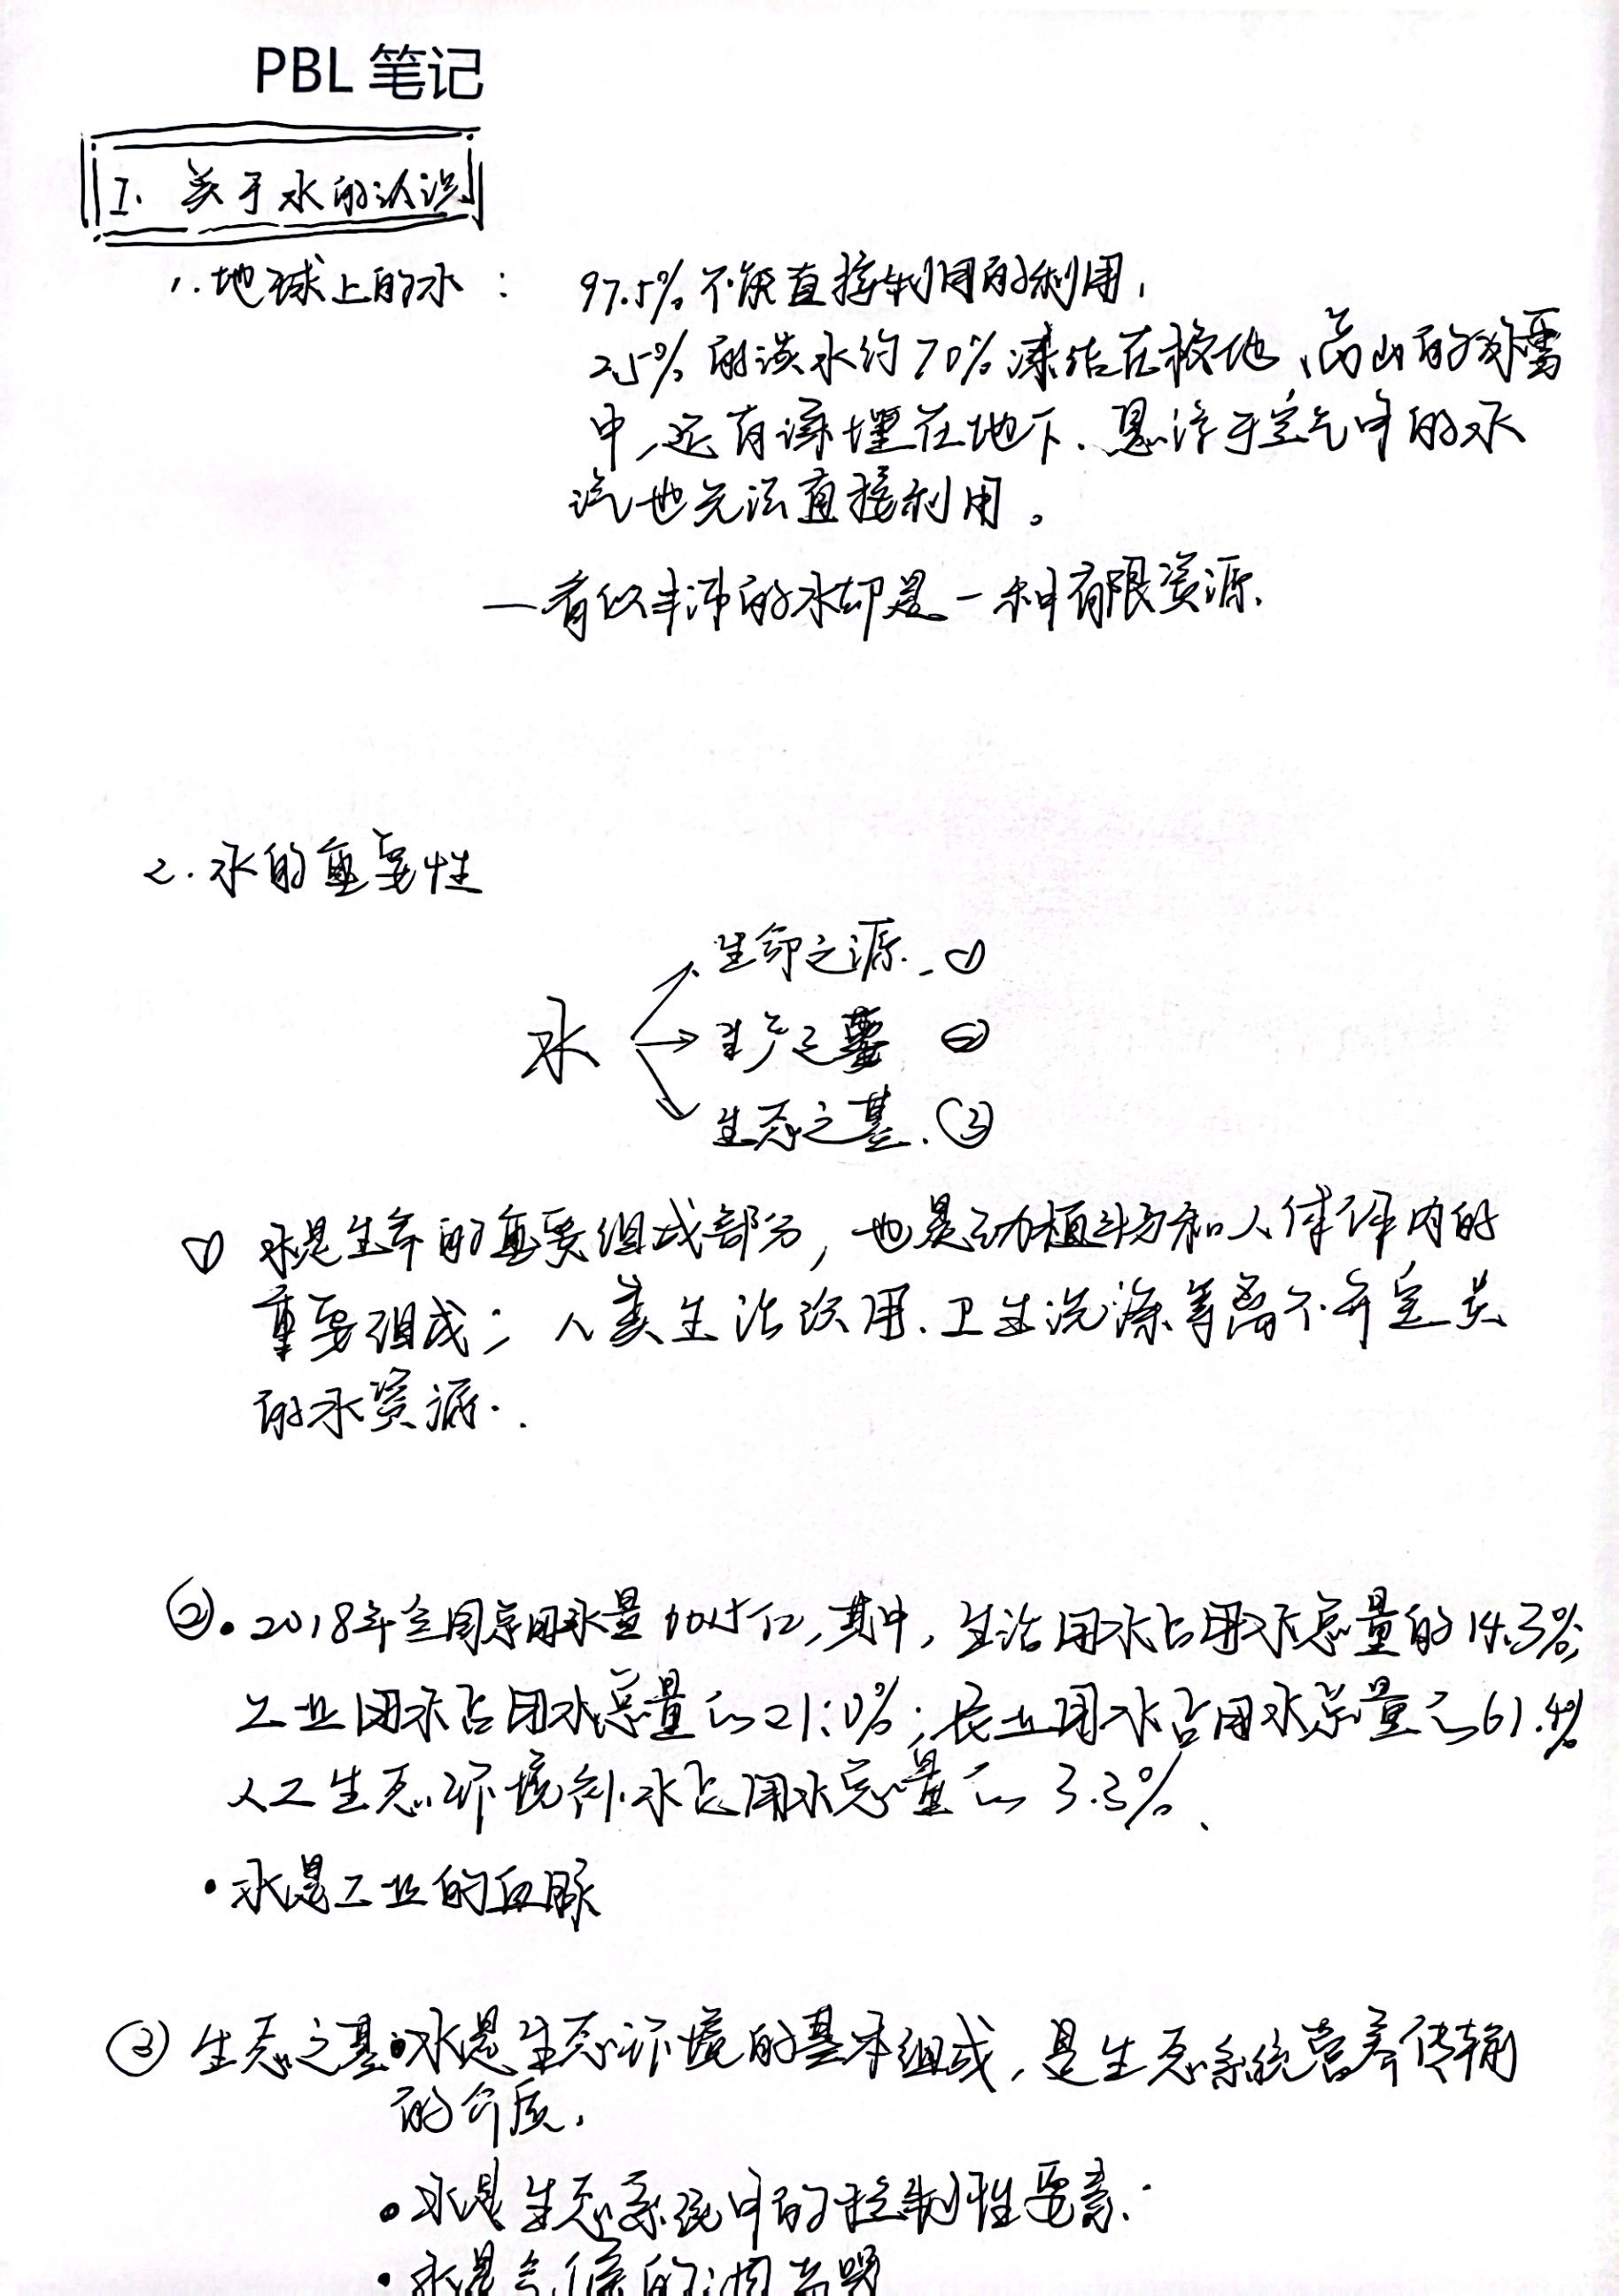 PBL 笔记
I. 关于水的认识
1. 地球上的水: 97.5% 不能直接利用的利用,
2.5% 的淡水约70%冻结在极地、高山的冰雪
中,还有深埋在地下、悬浮于空气中的水
汽也无法直接利用。
—看似丰沛的水却是一种有限资源.
2. 水的重要性
生命之源. ①
水 → 生产之要 ②
生态之基. ③
① 水是生命的重要组成部分, 也是动植物和人体体内的
重要组成; 人类生活饮用、卫生洗涤等离不开
的水资源.
②• 2018年全国总用水量 亿,其中,生活用水占用水总量的14.3%;
工业用水占用水总量的21.0%; 农业用水占用水总量的61.4%
人工生态环境补水占用水总量的 3.3%、
• 水是工业的血脉
③ 生态之基•水是生态环境的基本组成, 是生态系统营养传输
的介质.
• 水是生态系统中的控制性要素.
• 水是气候的调节器